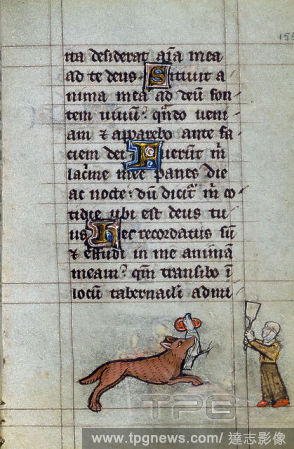 155
ita desiderat aīa mea
ad te deus Sitiuit a
nima mea ad deū fon
tem uiuū qn̄do ueni
am & apparebo ante fa
ciem dei Fuerūt m̄
lac̄me mee panes die
ac nocte dū dicit̄ m̄ co
tidie ubi est deus tu
us Hec recordatus sū
& effudi in me animā
meam qm̄ transibo ī
locū tabernac̄li admi
TPG
www.tpgnews.com/達志影像